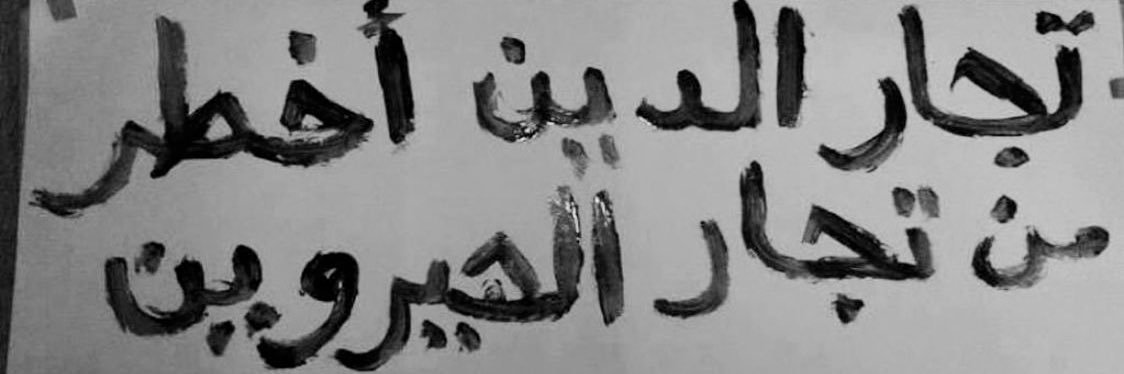 تجار الدين أخطر
من تجار الهيروين